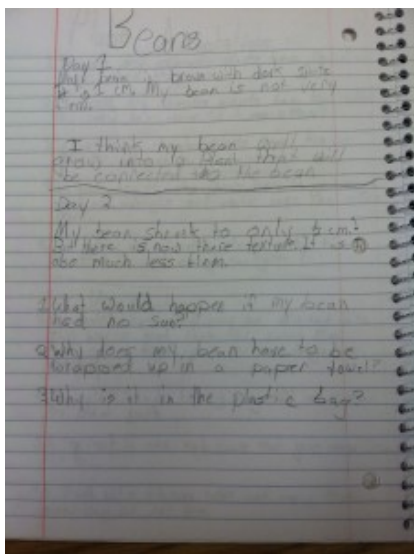 Beans
Day 1
My bean is brown with dark
It is 1 cm. My bean is not very
I think my bean will
grow into a plant that will
be connected to the bean
Day 2
My bean shrunk to only cm.
there is now texture. It is
much less
1. What would happen if my bean
had no
2. Why does my bean have to be
wrapped up in a paper towel?
3. Why is it in the plastic bag?